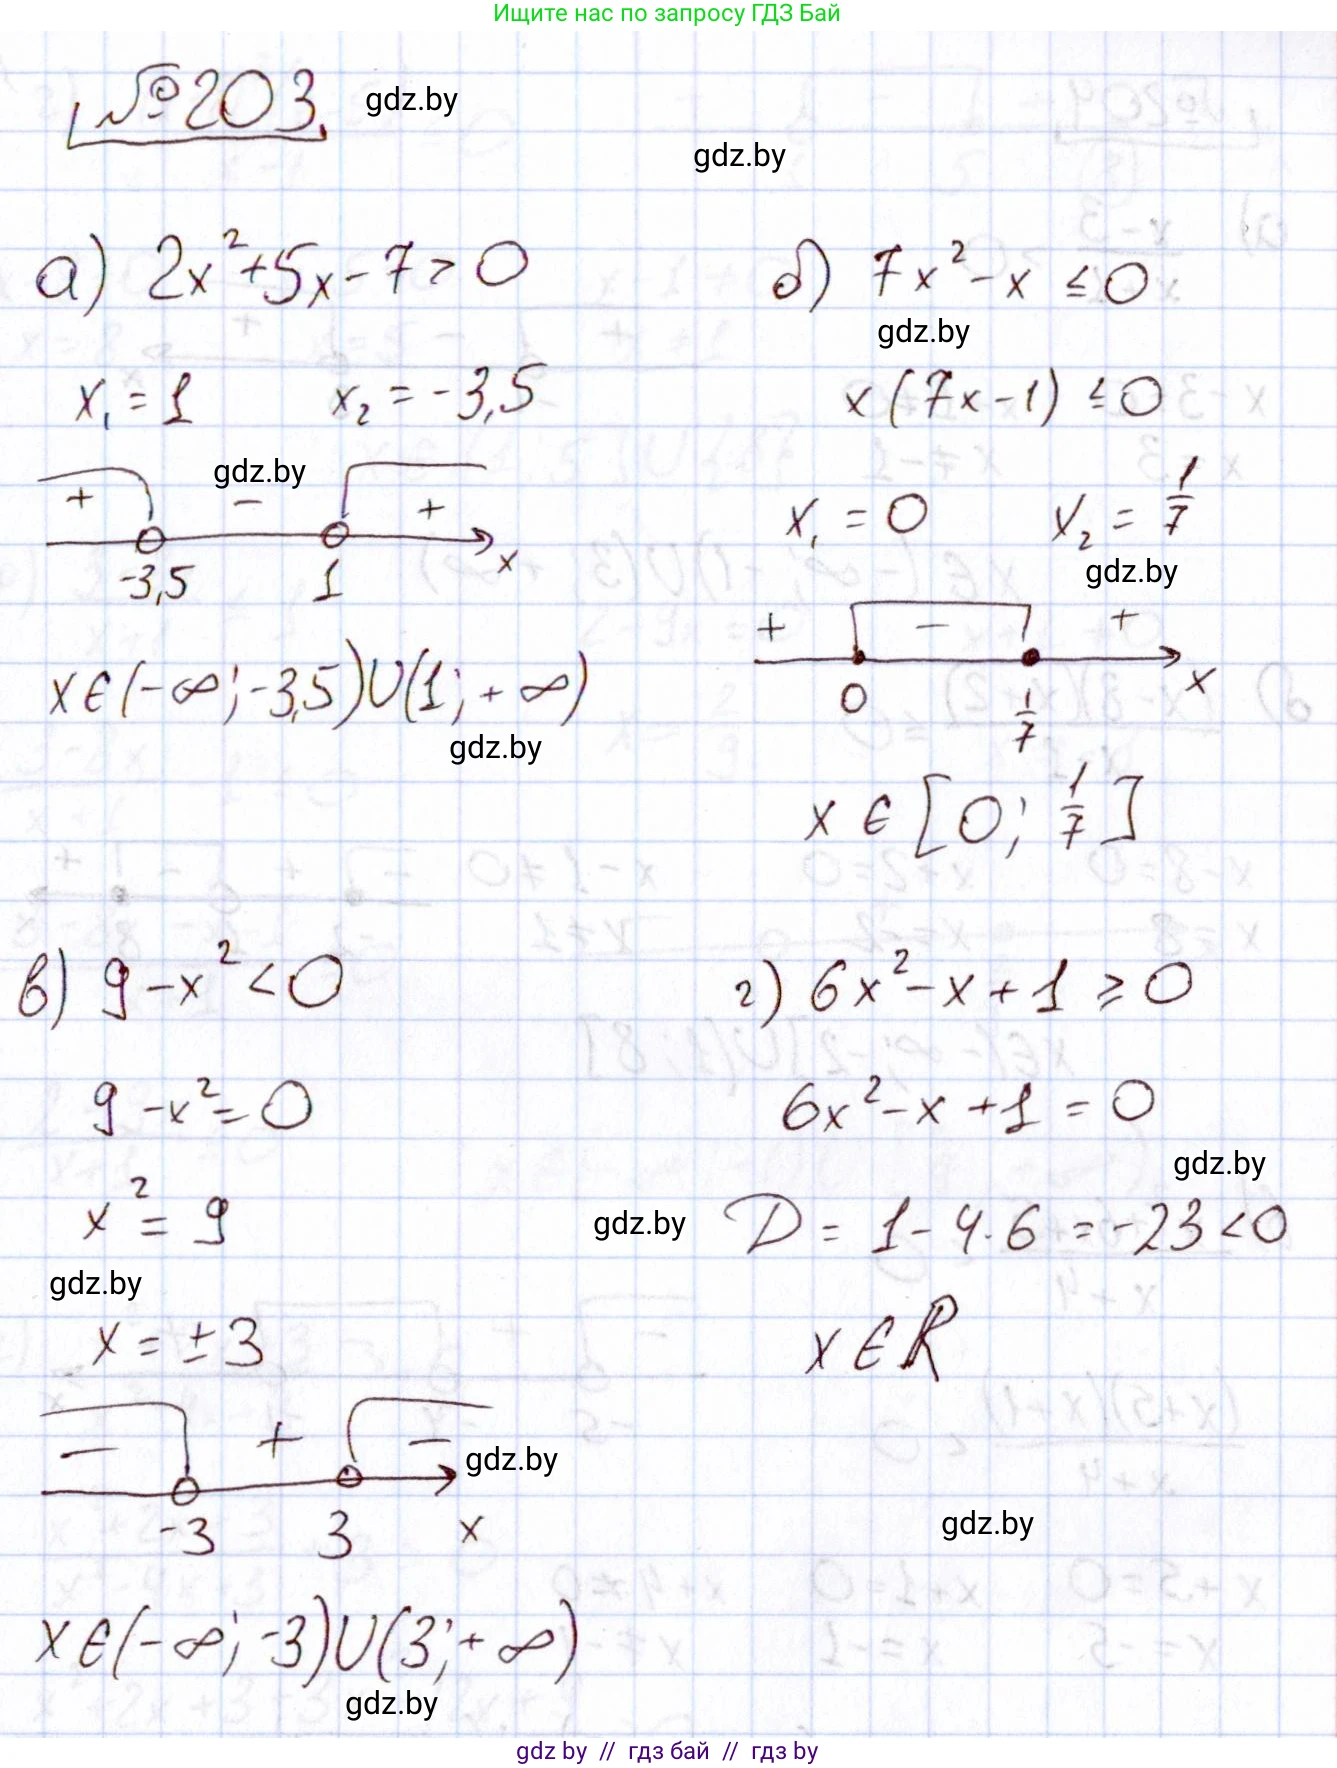 Ищите нас по запросу ГДЗ Бай
№203
gdz.by
gdz.by
а) 2x²+5x-7>0
x₁=1 x₂=-3,5
gdz.by
+ - +
-3,5 1 x
x∈(-∞;-3,5)∪(1;+∞)
gdz.by
б) 7x²-x≤0
gdz.by
x(7x-1)≤0
x₁=0 x₂=1/7
gdz.by
+ - +
0 1/7 x
x∈[0;1/7]
в) 9-x²<0
9-x²=0
x²=9
gdz.by
gdz.by
x=±3
- + -
gdz.by
-3 3 x
x∈(-∞;-3)∪(3;+∞)
gdz.by
г) 6x²-x+1≥0
6x²-x+1=0
gdz.by
D=1-4·6=-23<0
x∈R
gdz.by
gdz by // гдз бай // гдз by